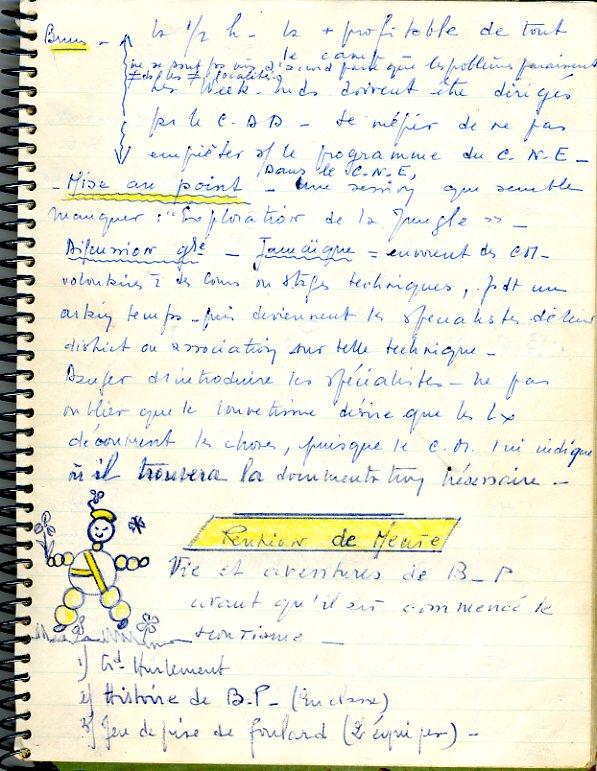 la 1/2 h - la + profitable de tout
Bruns - le camp -
ne se sont pas mis d'accord parce que les problèmes paraissent
≠ ds les ≠ localités
Les Week-ends doivent être dirigés
par le C.DD - Se méfier de ne pas
empiéter s/ le programme du C.N.E -
Dans le C.N.E,
- Mise au point - une session qui semble
manquer : "Exploration de la Jungle" -
Discussion gle - Jamaïque = envoient des CM -
volontaires à des Cours ou stages techniques, pdt un
temps - puis deviennent les spécialistes de leur
district ou association sur telle technique -
Danger d'introduire les spécialistes - ne pas
oublier que le louvetisme désire que les Lx
découvrent les choses, puisque le C.M. lui indique
où il trouvera la documentation nécessaire -
Réunion de Meute
Vie et aventures de B-P
avant qu'il ait commencé le
scoutisme -
1) Gd. Hurlement
2) Histoire de B.P - (En classe)
3) Jeu de prise de foulard (2 équipes) -